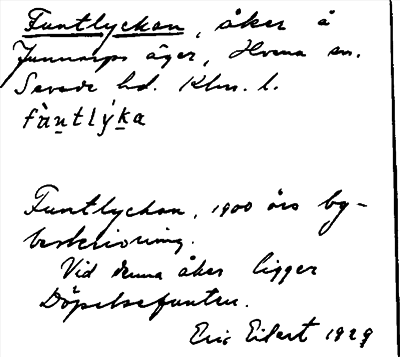 Funtlyckan, åker å
Junnarps äger, Hvena sn.
Sevede hd. Klm. l.
fàntlýka
Funtlyckan, 1900 års by-
beskrivning.
Vid denna åker ligger
Döpelsefunten.
Eric Eilert 1929